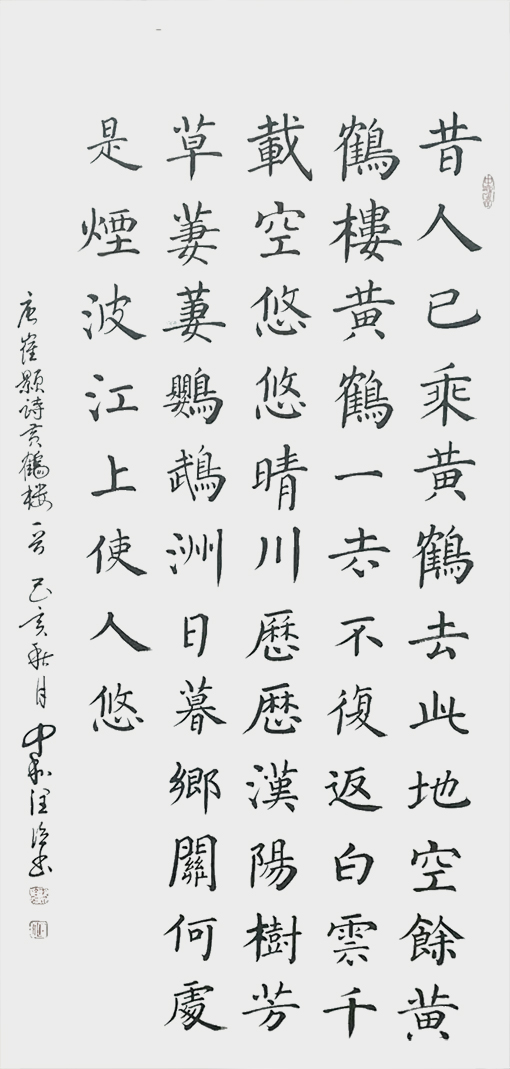 昔人已乘黃鶴去此地空餘黃
鶴樓黃鶴一去不復返白雲千
載空悠悠晴川曆曆漢陽樹芳
草萋萋鸚鵡洲日暮鄉關何處
是煙波江上使人悠
唐崔顥詩黃鶴楼一首 己亥秋月 中和